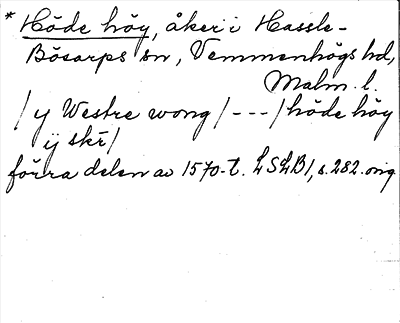 * Höde höy, åker i Hassle-
Bösarps sn, Vemmenhögs hd,
Malm. l.
/ y Westre wong / - - - / höde höy
ij skr̄ /
förra delen av 1570-t. LSLB1, s. 282. orig